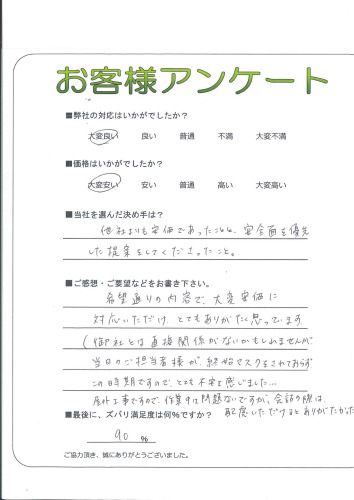 お客様アンケート
■弊社の対応はいかがでしたか?
大変良い 良い 普通 不満 大変不満
■価格はいかがでしたか?
大変安い 安い 普通 高い 大変高い
■当社を選んだ決め手は?
他社よりも安価であったことと、安全面を優先
した提案をしてくださったこと。
■ご感想・ご要望などをお書き下さい。
希望通りの内容で、大変安価に
対応いただけ、とてもありがたく思っています
(御社とは直接関係がないかもしれませんが
当日のご担当者様が、終始マスクをされておらず
この時期ですので、とても不安を感じました…
屋外工事ですので、作業中は問題ないですが、会話の際は、
配慮いただけるとありがたかった
■最後に、ズバリ満足度は何%ですか?
90 %
ご協力頂き、誠にありがとうございました。